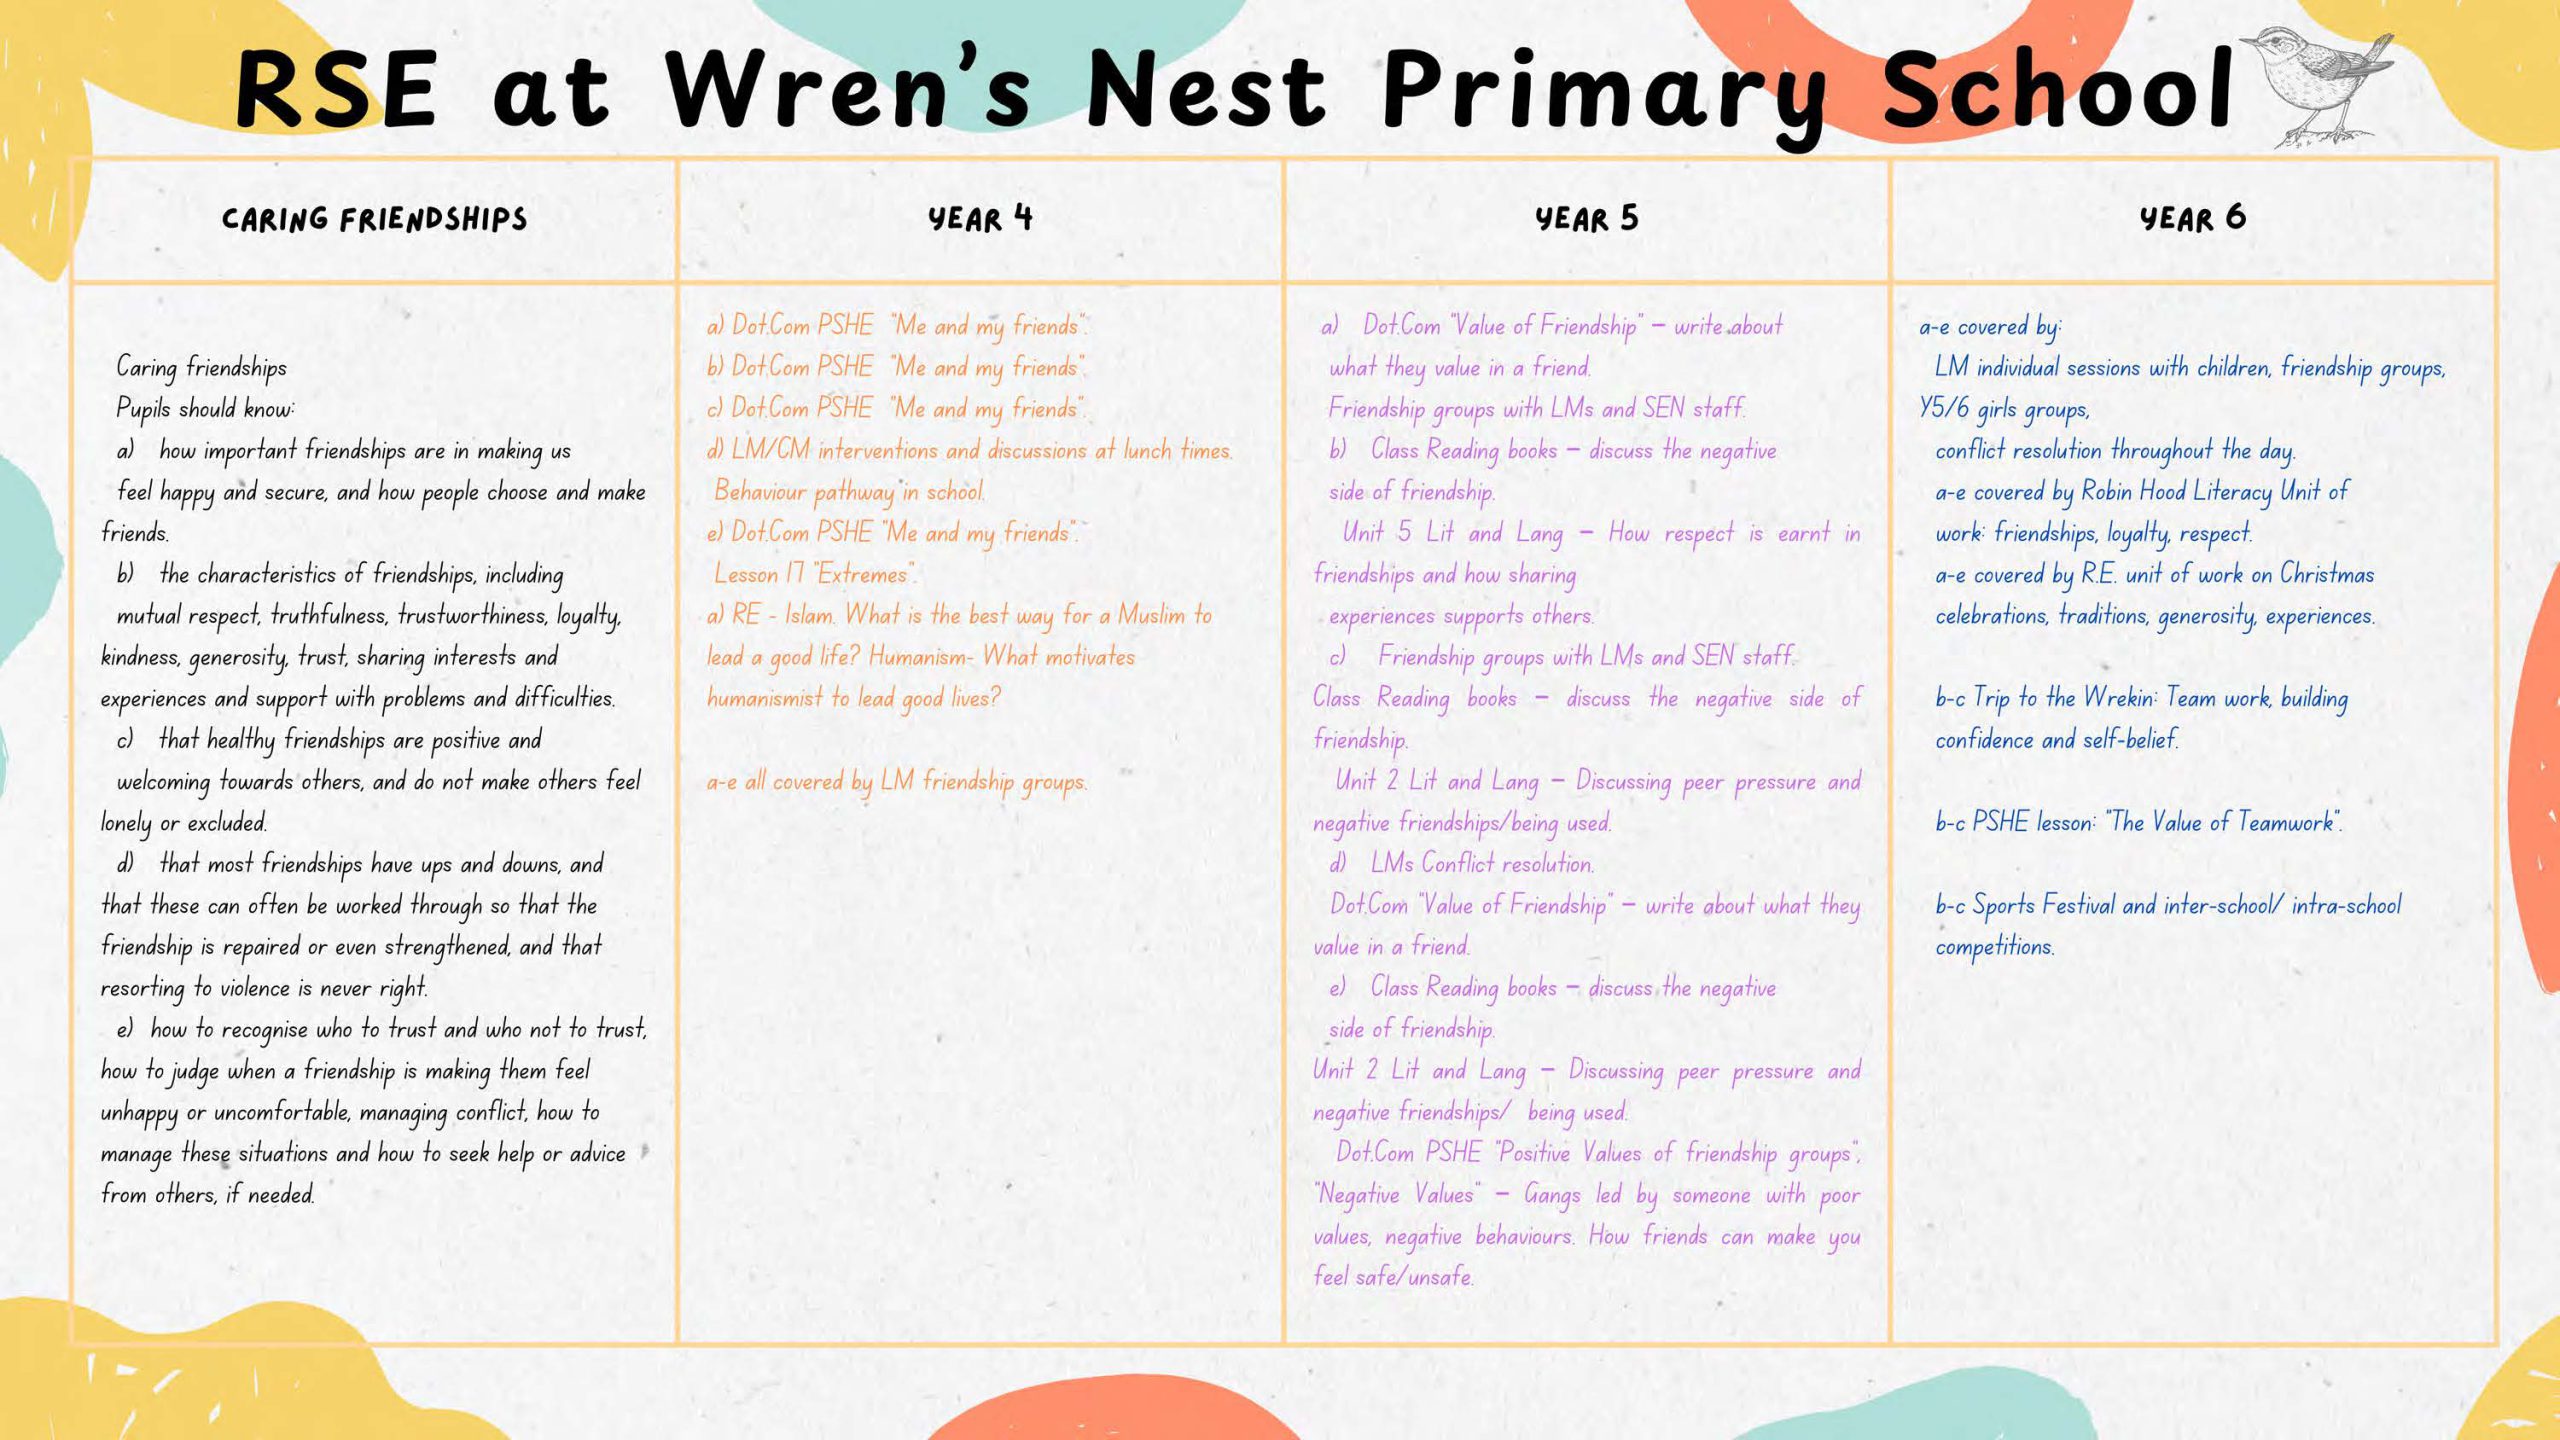 RSE at Wren's Nest Primary School
CARING FRIENDSHIPS
YEAR 4
YEAR 5
YEAR 6
Caring friendships
Pupils should know:
a) how important friendships are in making us
feel happy and secure, and how people choose and make
friends.
b) the characteristics of friendships, including
mutual respect, truthfulness, trustworthiness, loyalty,
kindness, generosity, trust, sharing interests and
experiences and support with problems and difficulties.
c) that healthy friendships are positive and
welcoming towards others, and do not make others feel
lonely or excluded.
d) that most friendships have ups and downs, and
that these can often be worked through so that the
friendship is repaired or even strengthened, and that
resorting to violence is never right.
e) how to recognise who to trust and who not to trust,
how to judge when a friendship is making them feel
unhappy or uncomfortable, managing conflict, how to
manage these situations and how to seek help or advice
from others, if needed.
a) Dot.Com PSHE "Me and my friends".
b) Dot.Com PSHE "Me and my friends".
c) Dot.Com PSHE "Me and my friends".
d) LM/CM interventions and discussions at lunch times.
Behaviour pathway in school.
e) Dot.Com PSHE "Me and my friends".
Lesson 17 "Extremes".
a) RE - Islam. What is the best way for a Muslim to
lead a good life? Humanism- What motivates
humanismist to lead good lives?
a-e all covered by LM friendship groups.
a) Dot.Com "Value of Friendship" – write about
what they value in a friend.
Friendship groups with LMs and SEN staff.
b) Class Reading books – discuss the negative
side of friendship.
Unit 5 Lit and Lang – How respect is earnt in
friendships and how sharing
experiences supports others.
c) Friendship groups with LMs and SEN staff.
Class Reading books – discuss the negative side of
friendship.
Unit 2 Lit and Lang – Discussing peer pressure and
negative friendships/being used.
d) LMs Conflict resolution.
Dot.Com "Value of Friendship" – write about what they
value in a friend.
e) Class Reading books – discuss the negative
side of friendship.
Unit 2 Lit and Lang – Discussing peer pressure and
negative friendships/ being used.
Dot.Com PSHE "Positive Values of friendship groups",
"Negative Values" – Gangs led by someone with poor
values, negative behaviours. How friends can make you
feel safe/unsafe.
a-e covered by:
LM individual sessions with children, friendship groups,
Y5/6 girls groups,
conflict resolution throughout the day.
a-e covered by Robin Hood Literacy Unit of
work: friendships, loyalty, respect.
a-e covered by R.E. unit of work on Christmas
celebrations, traditions, generosity, experiences.
b-c Trip to the Wrekin: Team work, building
confidence and self-belief.
b-c PSHE lesson: "The Value of Teamwork".
b-c Sports Festival and inter-school/ intra-school
competitions.